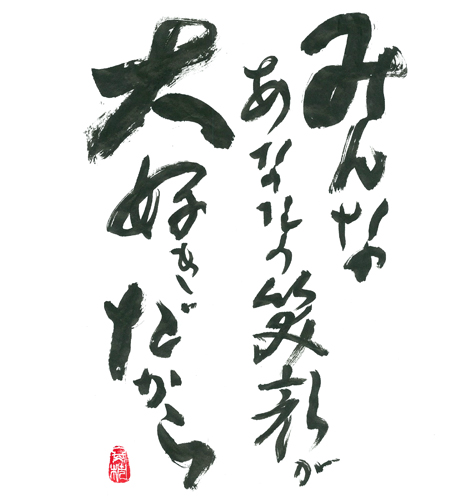 みんな
あなたの笑顔が
大好きだから